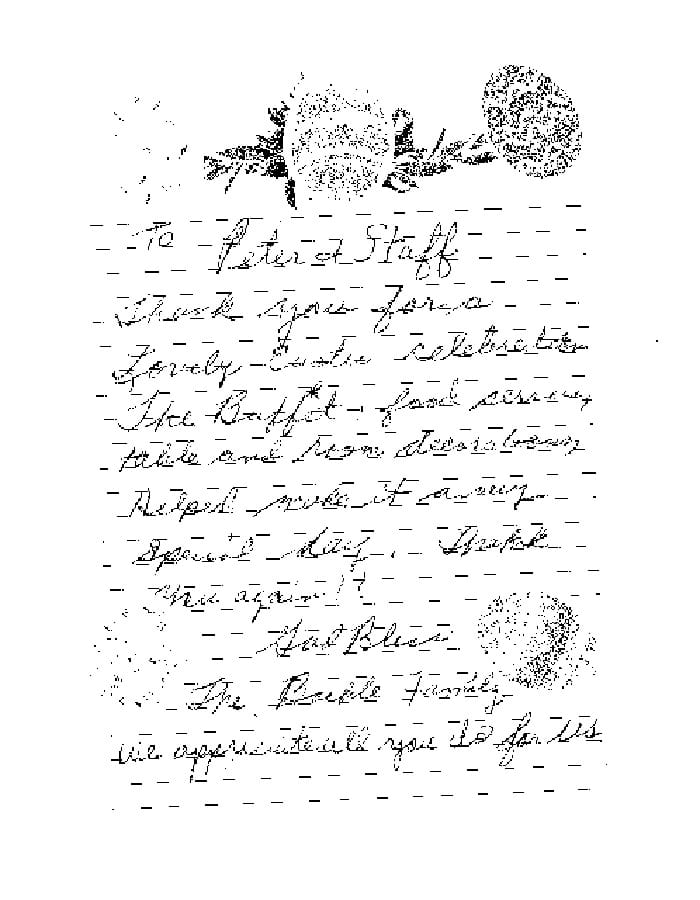 To Peter & Staff
Thank you for a
Lovely Easter celebration
The Buffet, food service,
table and room decorations
Helped make it a very
Special day. Thank
You again!!
God Bless
The Family
we appreciate all you do for us